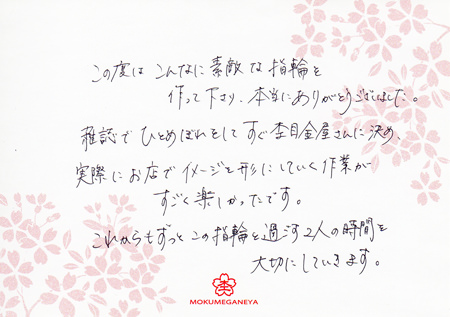 この度は こんなに素敵な指輪を
作って下さり、本当にありがとうございました。
雑誌で ひとめぼれをして すぐ杢目金屋さんに決め、
実際にお店で イメージを形にしていく作業が
すごく楽しかったです。
これからもずっと この指輪と過ごす2人の時間を
大切にしていきます。
杢
MOKUMEGANEYA